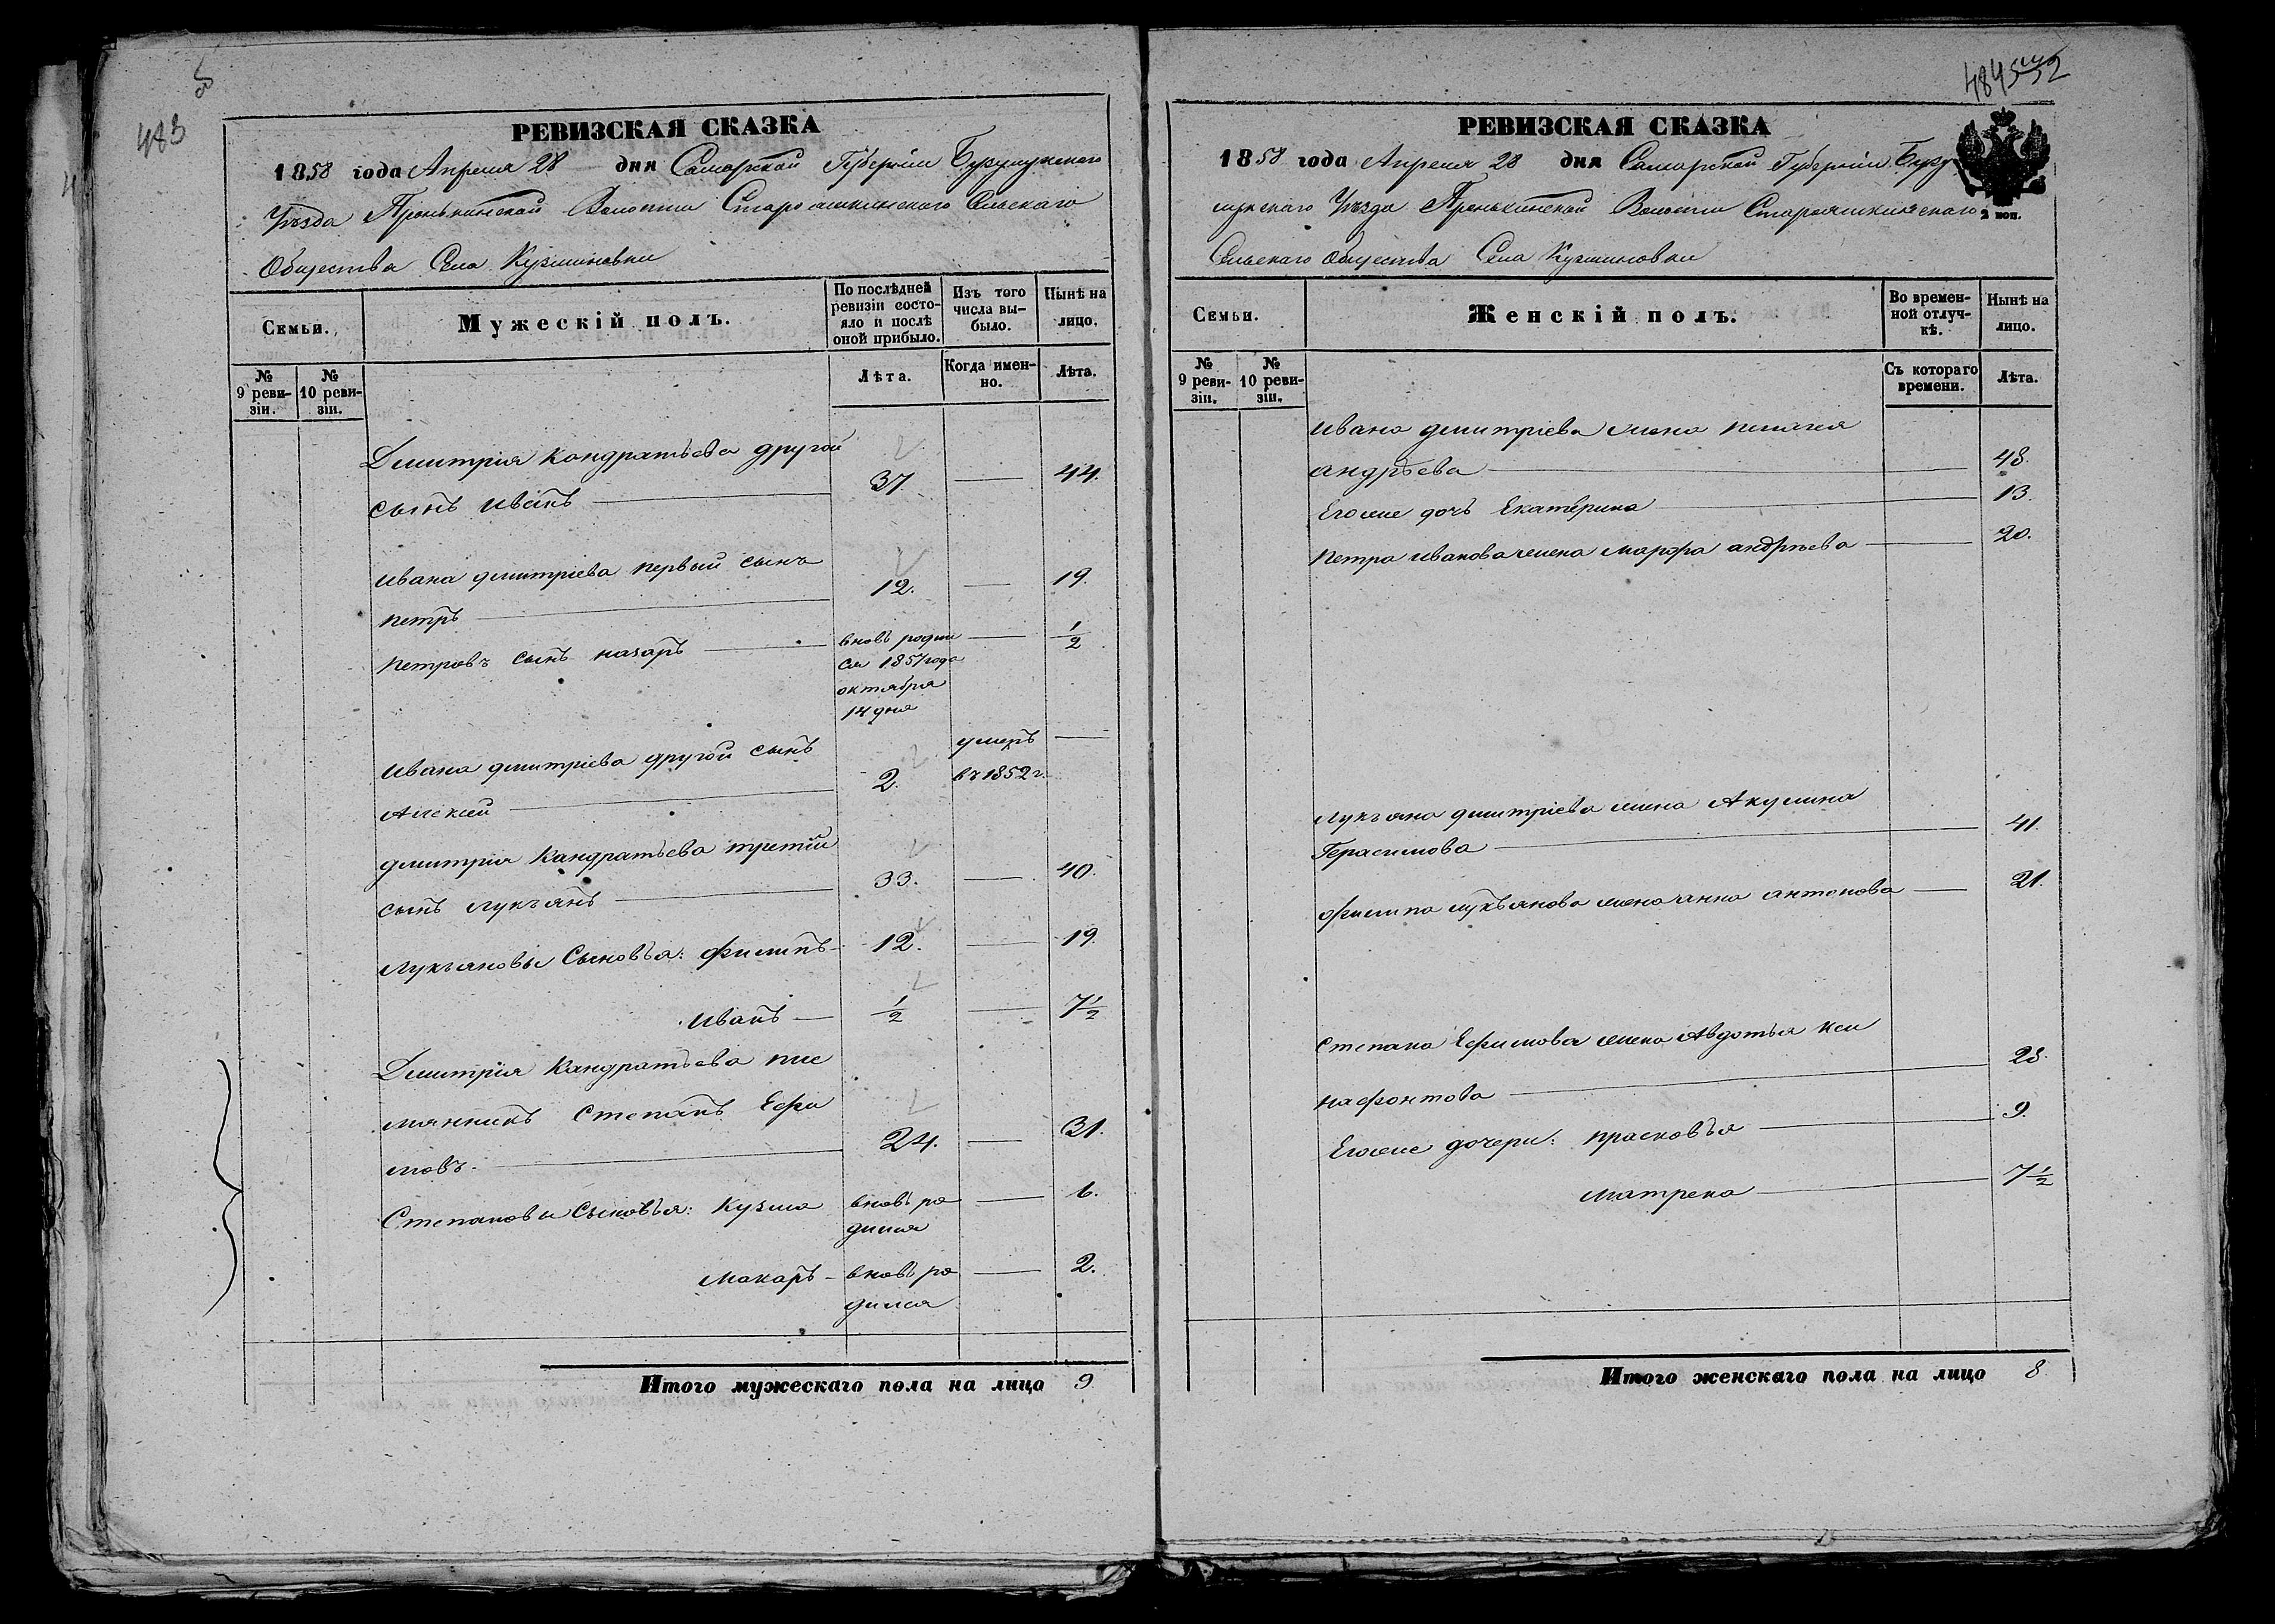 483
РЕВИЗСКАЯ СКАЗКА
1858 года Апреля 28 дня Самарской Губернии Бузулукского
Уѣзда Пронькинской Волости Староашкинского Сельскаго
Общества Села Кузминовки
Семьи.
Мужескій полъ.
По послѣдней ревизіи состояло и послѣ оной прибыло.
Изъ того числа выбыло.
Нынѣ на лицо.
№ 9 ревизіи.
№ 10 ревизіи.
Лѣта.
Когда именно.
Лѣта.
Дмитрія Кандратьева другой
сынъ Иванъ 37. 44.
Ивана дмитріева первый сынъ
петръ 12. 19.
петровъ сынъ назаръ вновь роди 1/2
ся 1857 года
октября
14 дня
Ивана дмитріева другой сынъ умеръ
Алексей 2. въ 1852 г.
дмитрія Кандратьева третій
сынъ лукъянъ 33. 40.
Лукъяновы Сыновья: филипъ 12. 19.
Иванъ 1/2 7 1/2
Дмитрія Кандратьева пле
мянникъ Степанъ Ефи
мовъ. 24. 31.
Степановы Сыновья: Кузма вновь ро 6.
дился
Макаръ вновь ро 2.
дился
Итого мужескаго пола на лицо 9.
РЕВИЗСКАЯ СКАЗКА
1858 года Апреля 28 дня Самарской Губерніи Бузу
лукского Уѣзда Пронькинской Волости Староашкинскаго
Сельскаго Общества Села Кузминовки
2 коп.
Семьи.
Женскій полъ.
Во временной отлучкѣ.
Нынѣ на лицо.
№ 9 ревизіи.
№ 10 ревизіи.
Съ котораго времени.
Лѣта.
Ивана дмитріева жена пелагея
андрѣева 48.
Егоже дочь Екатерина 13.
Петра иванова жена марфа андрѣева 20.
лукъяна дмитріева жена Акулина
Герасимова 41.
филипа лукъянова жена анна антонова 21.
Степана Ефимова жена Авдотья Ксе
нафонтова 28.
Егоже дочери: прасковья 9.
матрена 7 1/2
Итого женскаго пола на лицо 8.